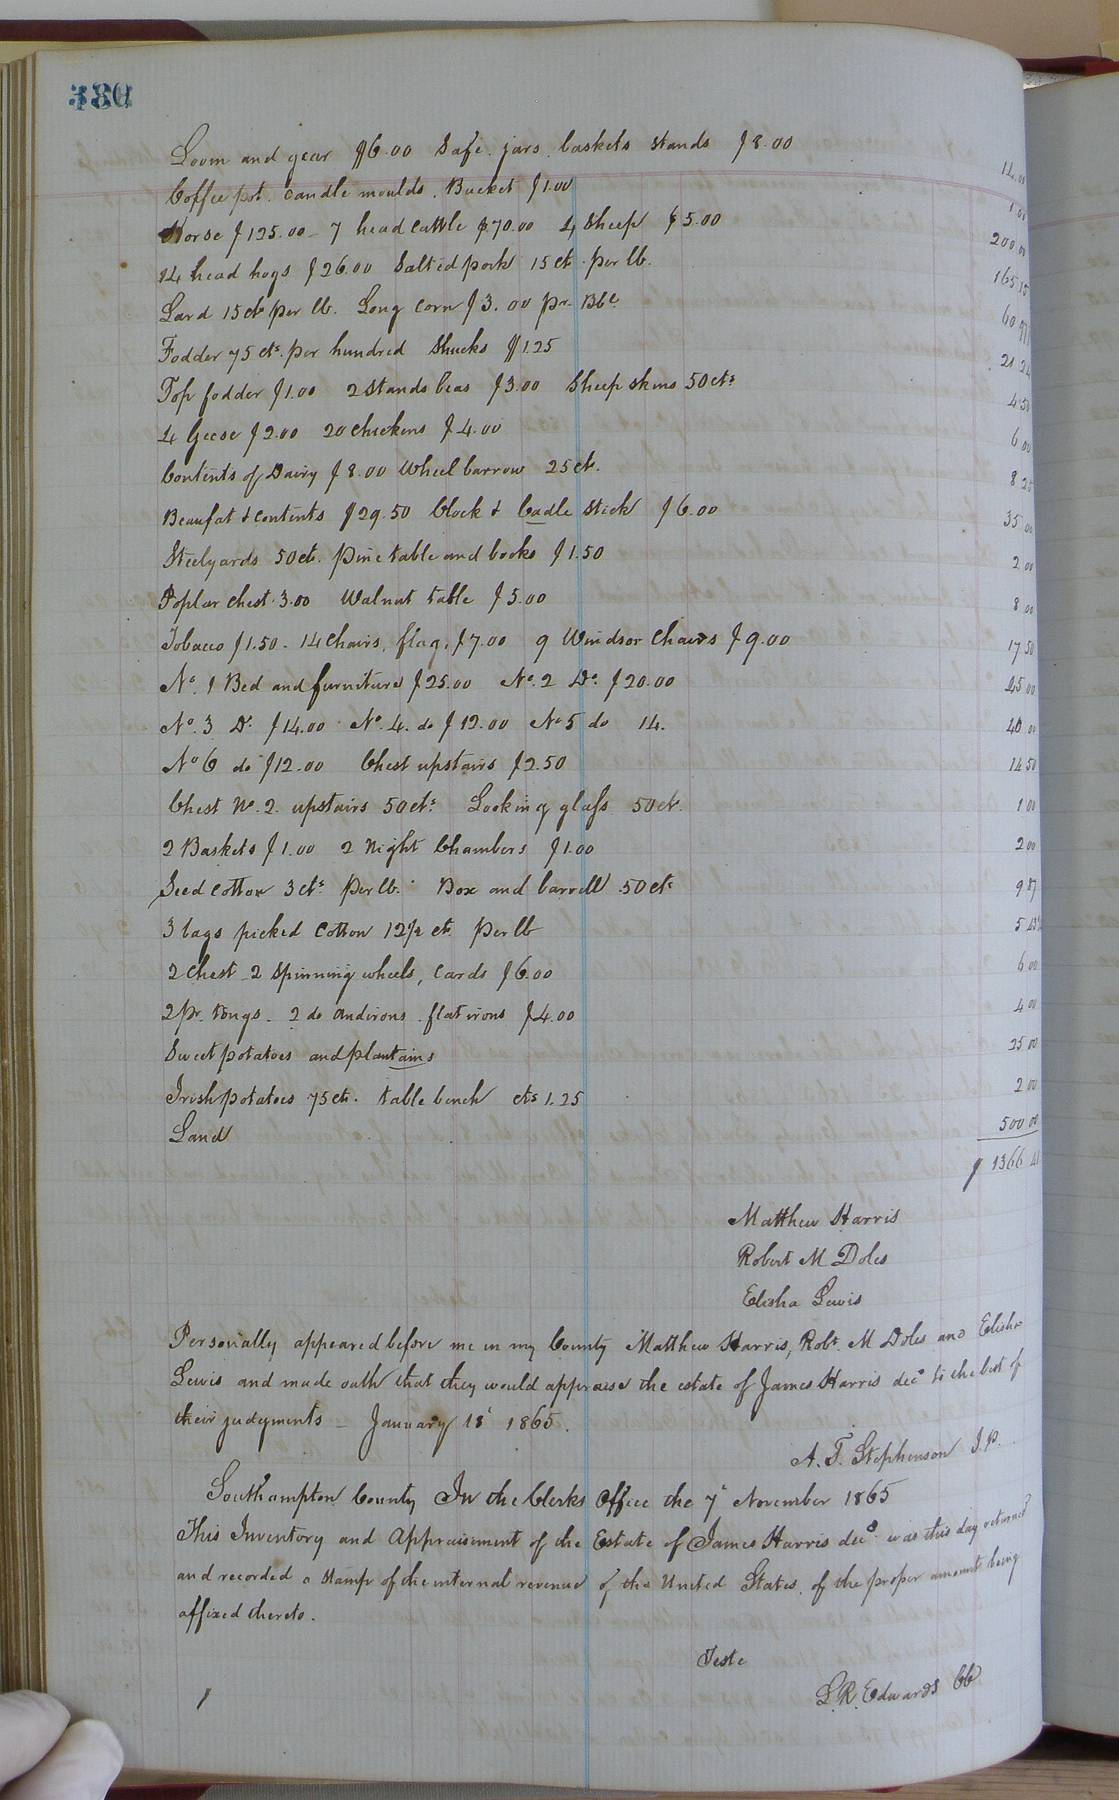 380
Loom and gear $6.00 Safe. jars. baskets stands $8.00 14.00
Coffee pot. candle moulds. Bucket $1.00 1.00
Horse $125.00 - 7 head cattle $70.00 4 Sheep $5.00 200.00
14 head hogs $26.00 Salted pork 15 ct. per lb. 165 15
Lard 15 cts per lb. Long corn $3.00 pr. Bbl 60
Fodder 75 cts. per hundred Shucks $1.25 21
Top fodder $1.00 2 Stands beas $3.00 Sheep skins 50 cts 4.50
4 Geese $2.00 20 chickens $4.00 6 00
Contents of Dairy $8.00 Wheel barrow 25 ct. 8 25
Beaufat & contents $29.50 Clock & Cadle stick $6.00 35 00
Steelyards 50 ct. pine table and books $1.50 2 00
Poplar chest. 3.00 Walnut table $5.00 8 00
Tobacco $1.50 - 14 Chairs, flag, $7.00 9 Windsor Chairs $9.00 17 50
No. 1 Bed and furniture $25.00 No. 2 Do. $20.00 45 00
No. 3 Do. $14.00 No. 4. do $12.00 No 5 do 14. 40 00
No 6 do $12.00 Chest upstairs $2.50 14 50
Chest No. 2. upstairs 50 cts Looking glass 50 ct. 1 00
2 Baskets $1.00 2 Night Chambers $1.00 2 00
Seed cotton 3 cts per lb. Box and barrell .50 cts 9 87
3 bags picked cotton 12½ ct. per lb 5
2 chest 2 Spinning wheels, cards $6.00 6 00
2 pr. tongs. 2 do andirons. flat irons $4.00 4 00
Sweet potatoes and plantains 25 00
Irish potatoes 75 ct. table bench cts 1.25 2 00
Land 500 00
$ 1366
Matthew Harris
Robert M Doles
Elisha Lewis
Personally appeared before me in my County Matthew Harris, Robt. M Doles and Elisha
Lewis and made oath that they would appraise the estate of James Harris decd to the best of
their judgments - January 18 1865.
A. T. Stephenson J.P.
Southampton County In the Clerks Office the 7 November 1865
This Inventory and Appraisement of the Estate of James Harris decd. was this day returned
and recorded a stamp of the internal revenue of the United States, of the proper amount being
affixed thereto.
Teste
L. R. Edwards CC